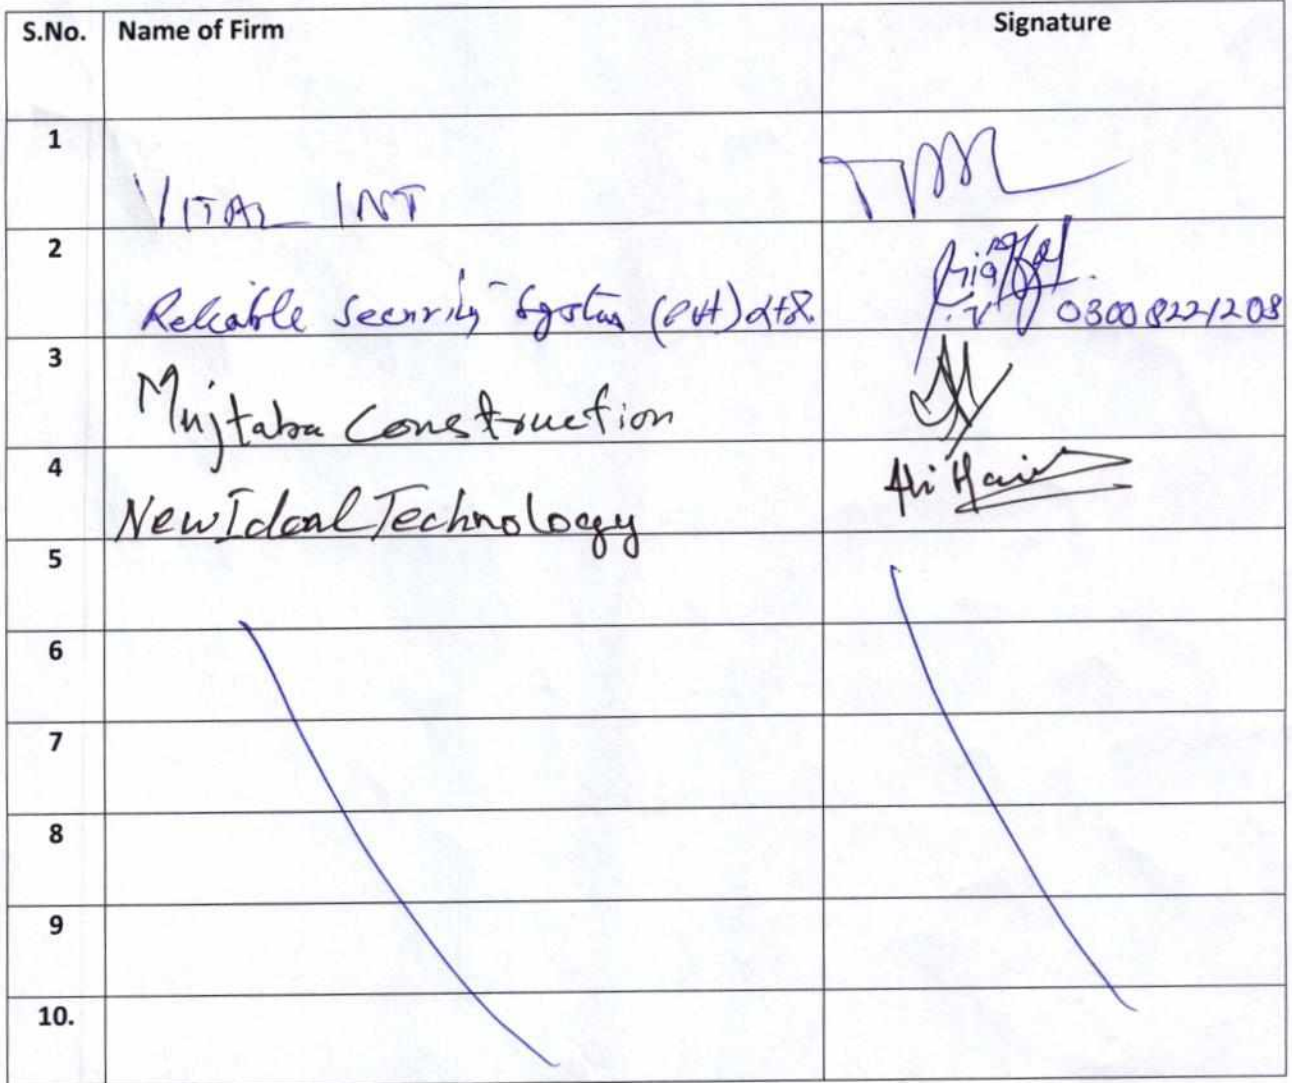 S.No. Name of Firm Signature
1
VITAL INT
2
Reliable Security System (Pvt) Ltd.
03008221208
3
Mujtaba Construction
4
New Ideal Technology Ali
5
6
7
8
9
10.